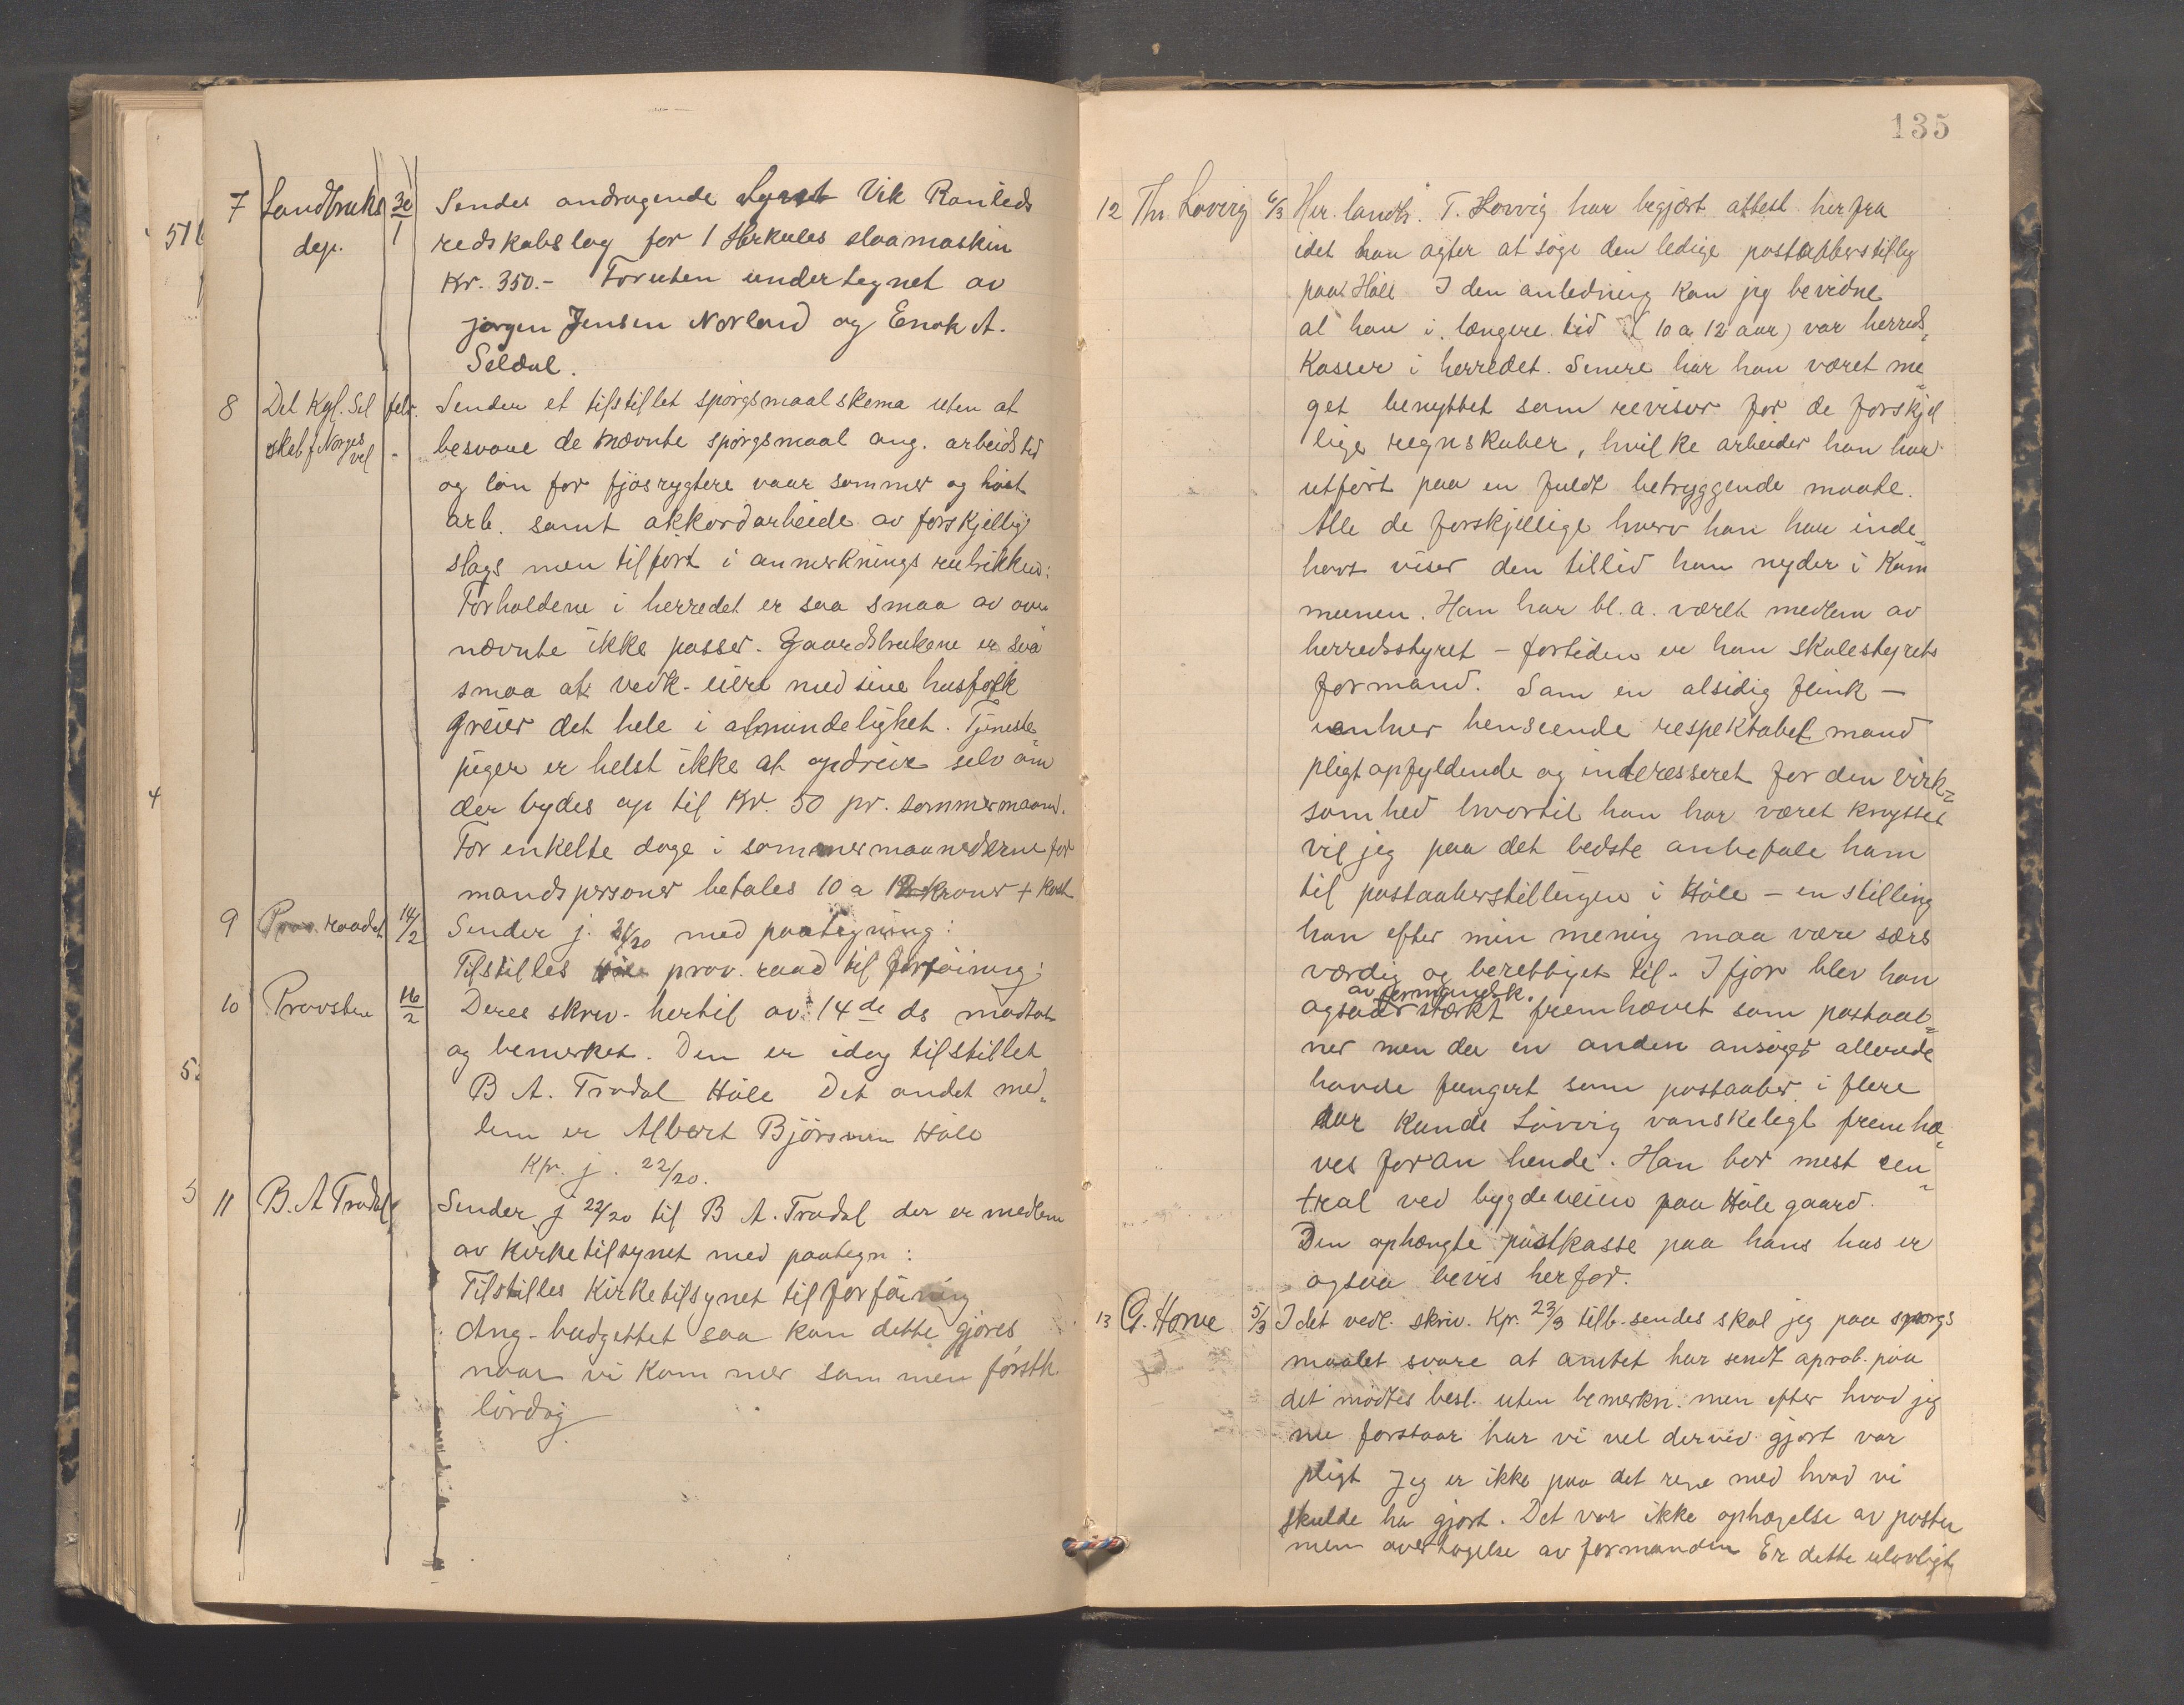 7 Landbruks 30/1 Sender andragende Vik Ranleds
dep. redskabslag for 1 Herkules slaamaskin
Kr. 350.- Foruten undertegnet av
jørgen Jensen Norland og Enok A.
Seldal.
8 Det Kgl. Sel febr. Sender et tilstillet spørgsmaalskema uten at
skab f Norges vel - besvare de nævnte spørgsmaal ang. arbeidstid
og løn for fjøsrygtere vaar sommer og høst
arb. samt akkordarbeide av forskjellig
slags men tilført i anmerknings rubrikken:
Forholdene i herredet er saa smaa av oven
nævnte ikke passer. Gaardsbrukene er saa
smaa at vedk. eiere med sine husfolk
greier det hele i almindelighet. Tjeneste=
piger er helst ikke at opdrive selv om
der bydes op til Kr. 50 pr. sommermaaned.
For enkelte dage i sommermaanederne for
mandspersoner betales 10 a 12 kroner + kost
9 Prov. raadet 14/2 Sender j. 21/20 med paategning:
Tilstilles Høle prov. raad til forføining:
10 Provsten 16/2 Deres skriv. hertil av 14de ds modtat
og bemerket. Den er idag tilstillet
B A. Tradal Høle Det andet med=
lem er Albert Bjørsmen Høle
Kpr. j. 22/20.
11 B. A Tradal Sender j 22/20 til B A. Tradal der er medlem
av Kirketilsynet med paategn:
Tilstilles Kirketilsynet til forføining
Ang. budgettet saa kan dette gjøres
naar vi kommer sammen førstk.
lørdag
135
12 Th. Løvvig 6/3 Her. landh. T. Løvvig har begjært attest herfra
idet han agter at søge den ledige postaaberstillig
paa Høle I den anledning kan jeg bevidne
at han i længere tid (10 a 12 aar) var herreds=
Kasser i herredet. Senere har han været me
get benyttet som revisor for de forskjel
lige regnskaber, hvilke arbeider han har
utført paa en fuldt betryggende maate.
Alle de forskjellige hverv han har inde=
havt viser den tillid han nyder i Kom
munen. Han har bl. a. været medlem av
herredsstyret - fortiden er han skolestyrets
formand. Som en alsidig flink -
i enhver henseende respektabel mand
pligtopfyldende og interesseret for den virk=
somhed hvortil han har været knyttet
vil jeg paa det bedste anbefale ham
til postaaberstillingen i Høle - en stilling
han efter min mening maa være særs
værdig og berettiget til. I fjor blev han
av formandsk.
ogsaa stærkt fremhævet som postaab=
ner men da en anden ansøger allerede
havde fungert som postaaber i flere
aar kunde Løvvig vanskeligt fremhæ=
ves foran hende. Han bor mest cen=
tral ved bygdeveien paa Høle gaard.
Den ophængte postkasse paa hans hus er
ogsaa bevis herfor.
13 G. Horve 5/3 I det vedl. skriv. Kpr. 23/3 tilb. sendes skal jeg paa spørgs
maalet svare at amtet har sendt aprob. paa
det mødtes besl. uten bemerkn. men efter hvad jeg
nu forstaar har vi vel derved gjort vor
pligt Jeg er ikke paa det rene med hvad vi
skulde ha gjort. Det var ikke ophævelse av posten
men overtagelse av formanden Er dette ulovligt